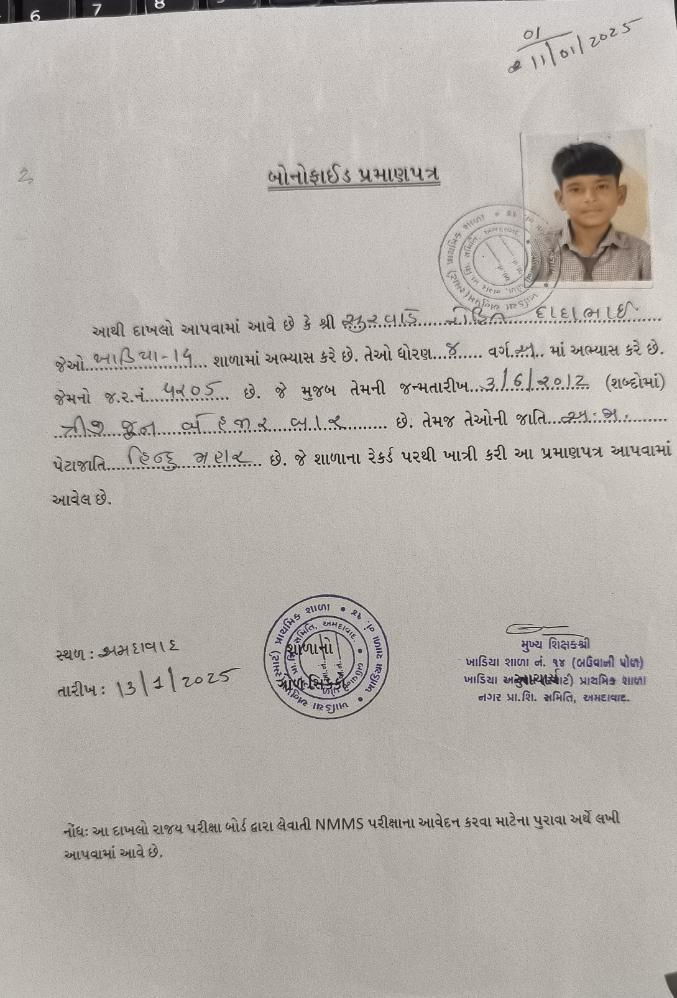 6 7 8
01
11/01/2025
2
બોનોફાઈડ પ્રમાણપત્ર
આથી દાખલો આપવામાં આવે છે કે શ્રી સુરવાડે રોહિત દાદાભાઈ
જેઓ ખાડિયા-14 શાળામાં અભ્યાસ કરે છે. તેઓ ધોરણ 8 વર્ગ અ માં અભ્યાસ કરે છે.
જેમનો જ.ર.નં. ૫૨૦૫ છે. જે મુજબ તેમની જન્મતારીખ 3/6/૨૦૧૨ (શબ્દોમાં)
ત્રીજી જુન બે હજાર બાર છે. તેમજ તેઓની જાતિ અ.જા.
પેટાજાતિ હિન્દુ મહાર છે. જે શાળાના રેકર્ડ પરથી ખાત્રી કરી આ પ્રમાણપત્ર આપવામાં
આવેલ છે.
સ્થળ : અમદાવાદ
તારીખ : 13/1/2025
શાળાનો
ગોળ સિક્કો
મુખ્ય શિક્ષકશ્રી
ખાડિયા શાળા નં. ૧૪ (બઉવાની પોળ)
ખાડિયા અનુપમ (સ્માર્ટ) પ્રાથમિક શાળા
નગર પ્રા.શિ. સમિતિ, અમદાવાદ.
નોંધઃ આ દાખલો રાજય પરીક્ષા બોર્ડ દ્વારા લેવાતી NMMS પરીક્ષાના આવેદન કરવા માટેના પુરાવા અર્થે લખી
આપવામાં આવે છે.